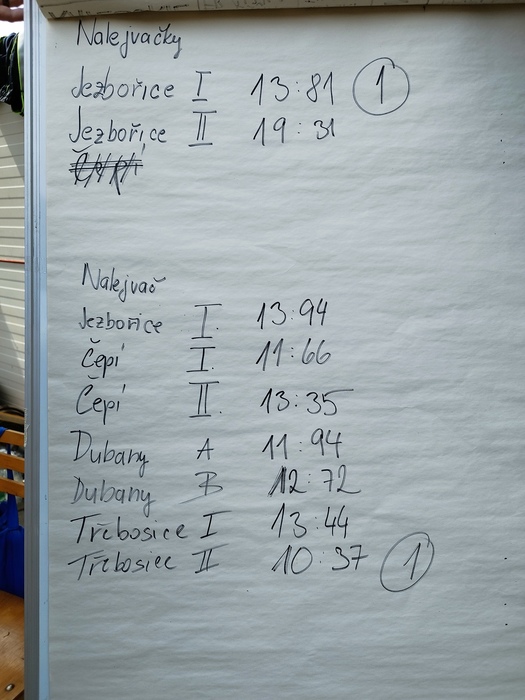 Nalejvačky
Jezbořice I 13:81 1
Jezbořice II 19:31
Nalejvač
Jezbořice I. 13:94
Čepí I. 11:66
Čepí II. 13:35
Dubany A 11:94
Dubany B 12:72
Třebosice I 13:44
Třebosiec II 10:37 1